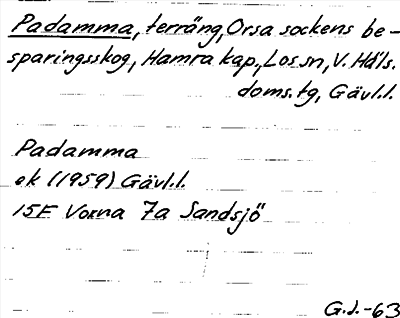 Padamma, terräng, Orsa sockens be-
sparingsskog, Hamra kap., Los sn, V. Häls.
doms.tg, Gävl.l.
Padamma
ek (1959) Gävl.l.
15F Voxna 7a Sandsjö
G.J.-63